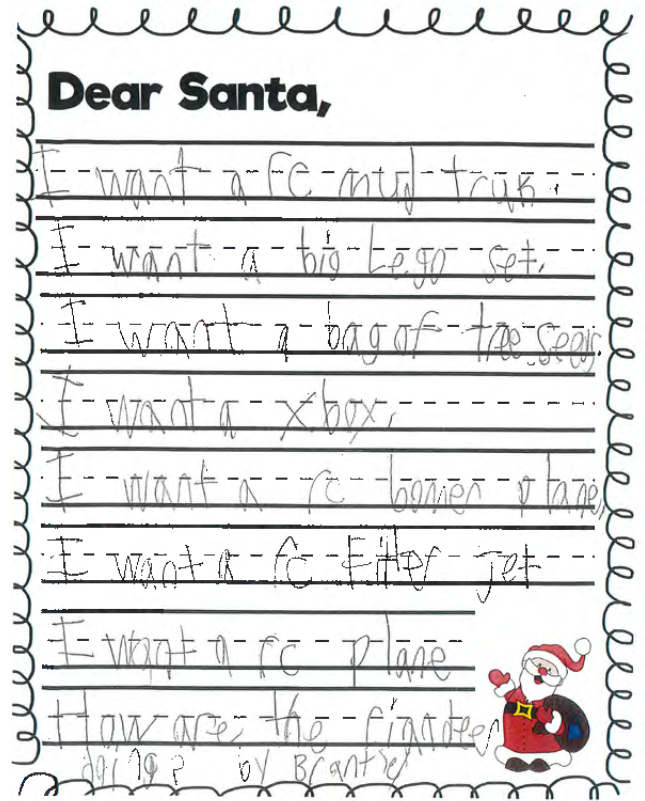 Dear Santa,
I want a rc mud truk.
I want a big Lego set.
I want a bag of tree seeds
I want a xbox.
I want a rc bomer plane,
I want a rc fiter jet
I want a rc plane
How are the riandeer
doing? by Brantley